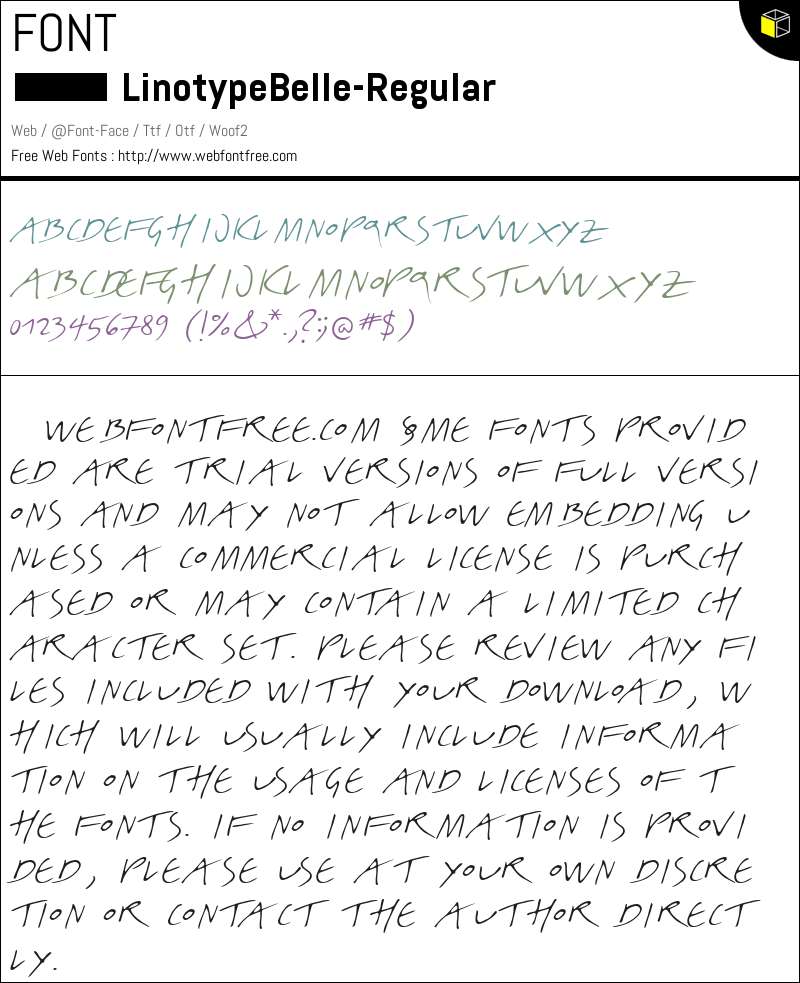 FONT
LinotypeBelle-Regular
Web / @Font-Face / Ttf / Otf / Woof2
Free Web Fonts : http://www.webfontfree.com
ABCDEFGHIJKLMNOPQRSTUVWXYZ
ABCDEFGHIJKLMNOPQRSTUVWXYZ
0123456789 (!%&*.,?:;@#$)
WEBFONTFREE.COM SOME FONTS PROVID
ED ARE TRIAL VERSIONS OF FULL VERSI
ONS AND MAY NOT ALLOW EMBEDDING U
NLESS A COMMERCIAL LICENSE IS PURCH
ASED OR MAY CONTAIN A LIMITED CH
ARACTER SET. PLEASE REVIEW ANY FI
LES INCLUDED WITH YOUR DOWNLOAD, W
HICH WILL USUALLY INCLUDE INFORMA
TION ON THE USAGE AND LICENSES OF T
HE FONTS. IF NO INFORMATION IS PROVI
DED, PLEASE USE AT YOUR OWN DISCRE
TION OR CONTACT THE AUTHOR DIRECT
LY.